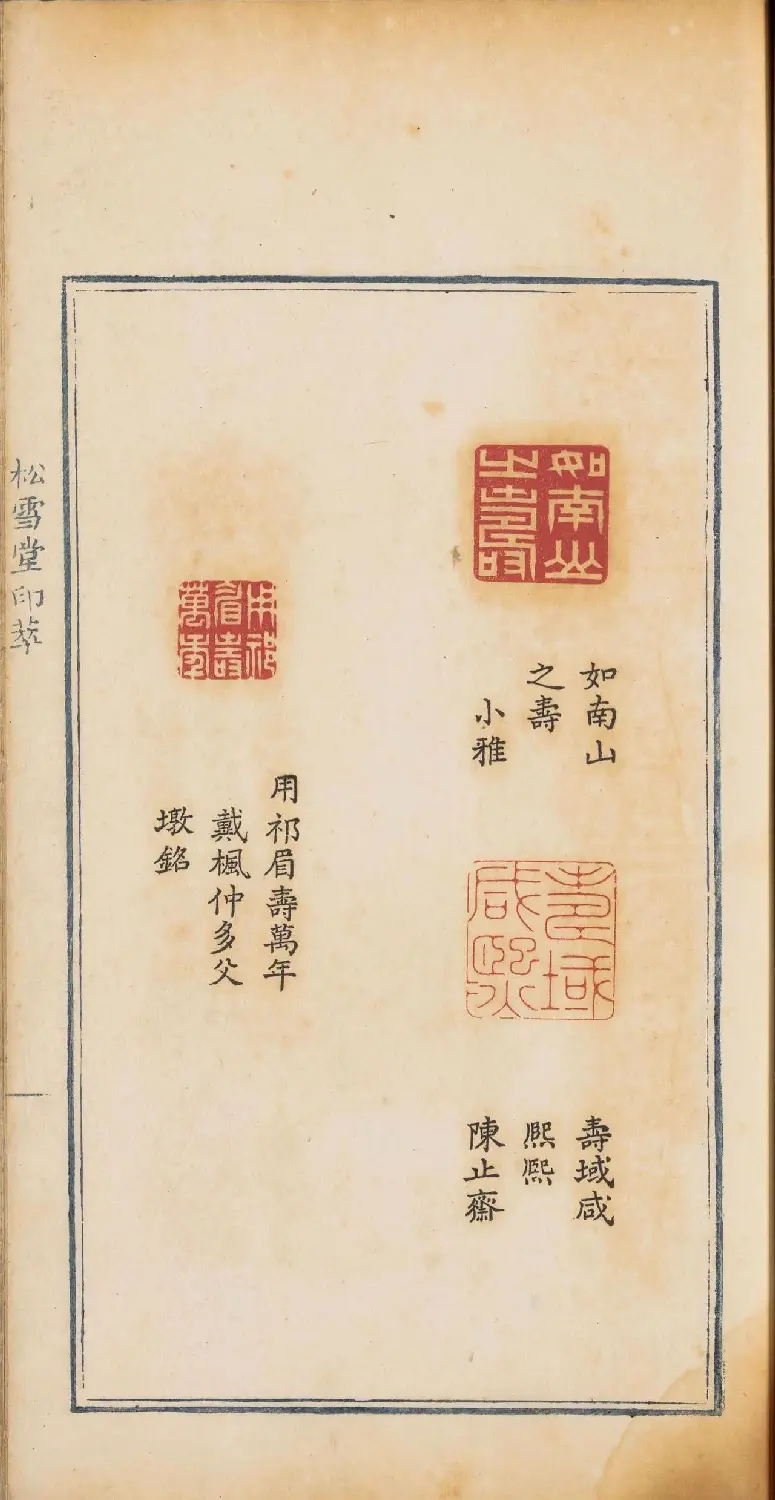 如南山
之壽
如南山
之壽
小雅
壽域
咸熙
壽域咸
熙熙
陳止齋
用祁
眉壽
萬年
用祁眉壽萬年
戴楓仲多父
墩銘
松雪堂印萃